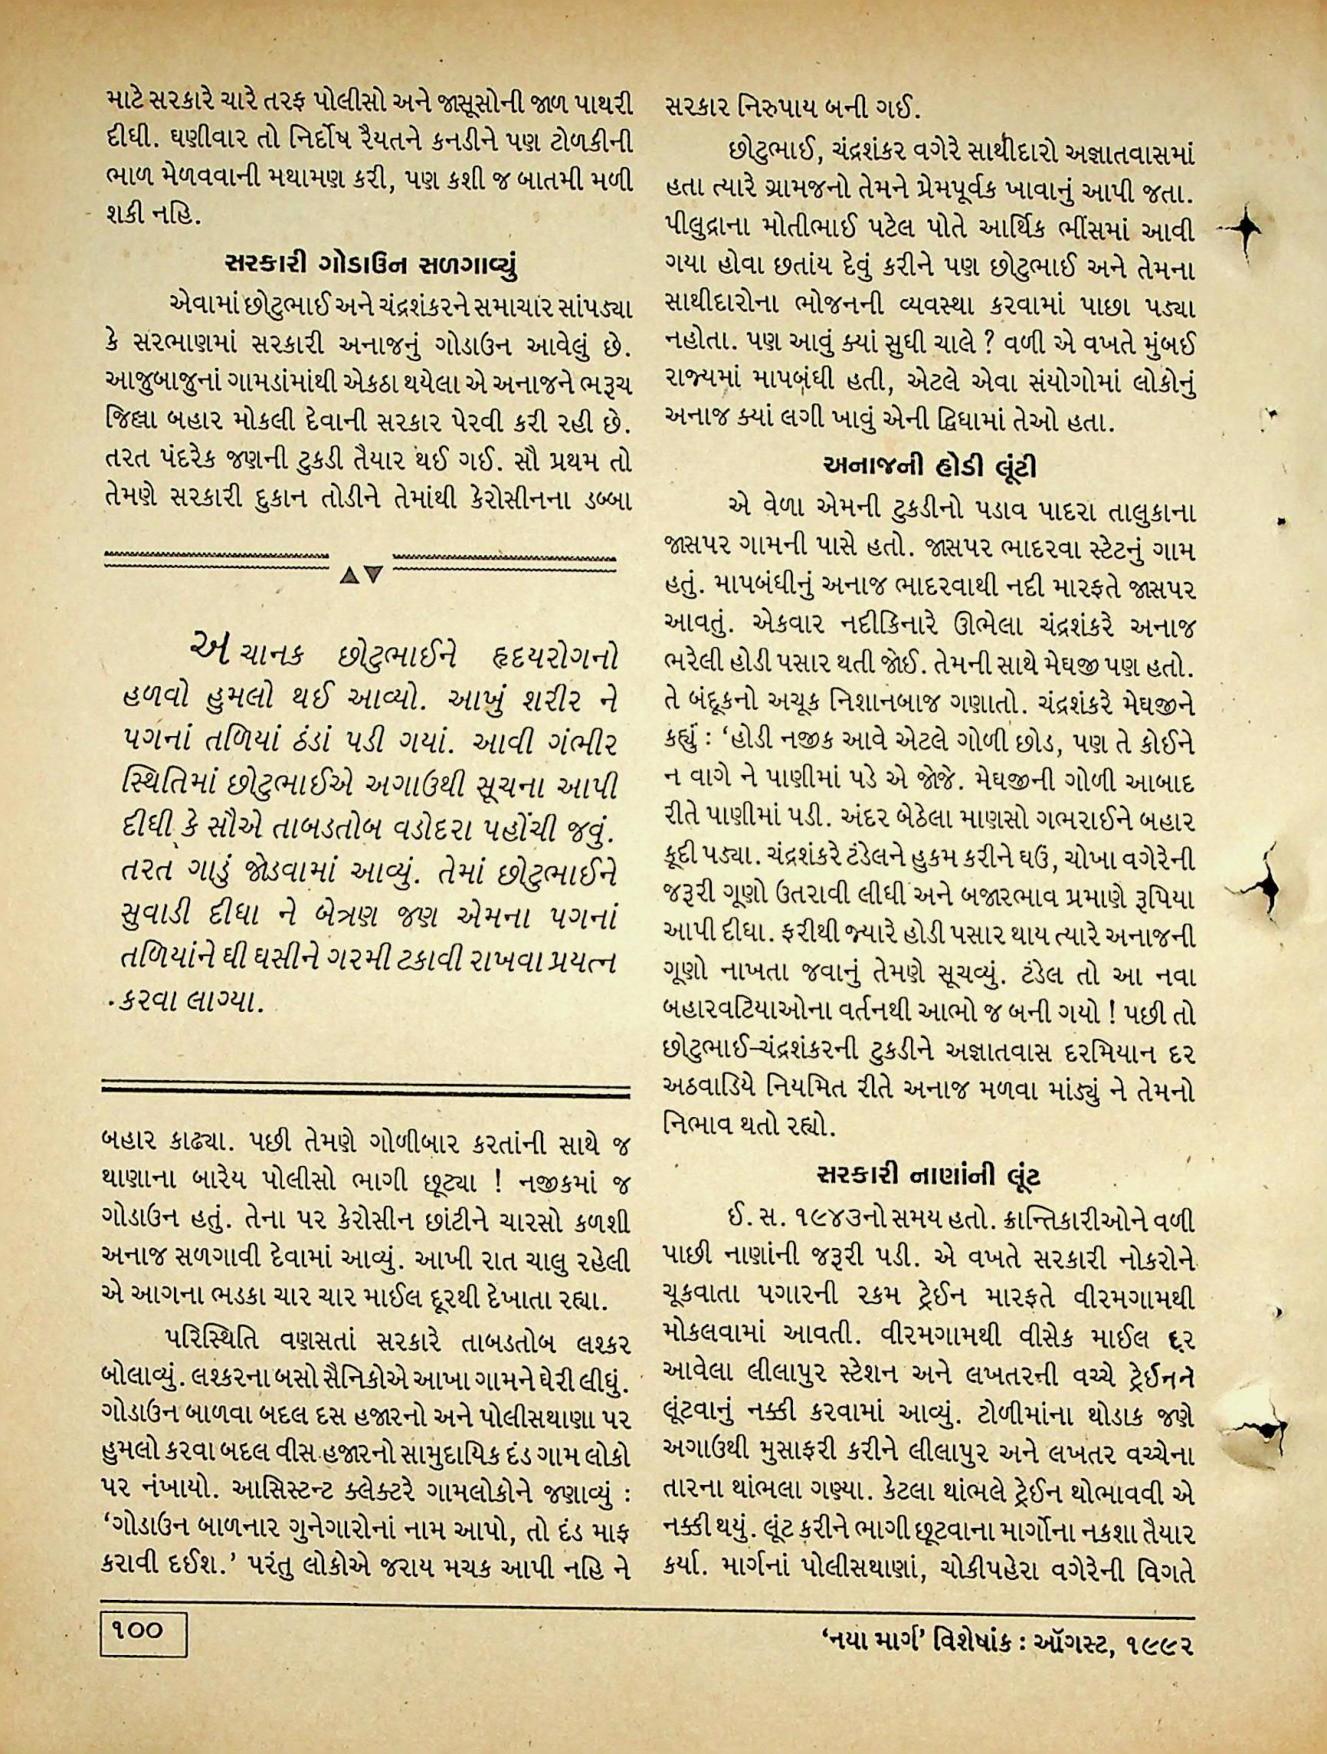 માટે સરકારે ચારે તરફ પોલીસો અને જાસૂસોની જાળ પાથરી
દીધી. ઘણીવાર તો નિર્દોષ રૈયતને કનડીને પણ ટોળકીની
ભાળ મેળવવાની મથામણ કરી, પણ કશી જ બાતમી મળી
શકી નહિ.
સરકારી ગોડાઉન સળગાવ્યું
એવામાં છોટુભાઈ અને ચંદ્રશંકરને સમાચાર સાંપડ્યા
કે સરભાણમાં સરકારી અનાજનું ગોડાઉન આવેલું છે.
આજુબાજુનાં ગામડાંમાંથી એકઠા થયેલા એ અનાજને ભરૂચ
જિલ્લા બહાર મોકલી દેવાની સરકાર પેરવી કરી રહી છે.
તરત પંદરેક જણની ટુકડી તૈયાર થઈ ગઈ. સૌ પ્રથમ તો
તેમણે સરકારી દુકાન તોડીને તેમાંથી કેરોસીનના ડબ્બા
અચાનક છોટુભાઈને હૃદયરોગનો
હળવો હુમલો થઈ આવ્યો. આખું શરીર ને
પગનાં તળિયાં ઠંડાં પડી ગયાં. આવી ગંભીર
સ્થિતિમાં છોટુભાઈએ અગાઉથી સૂચના આપી
દીધી કે સૌએ તાબડતોબ વડોદરા પહોંચી જવું.
તરત ગાડું જોડવામાં આવ્યું. તેમાં છોટુભાઈને
સુવાડી દીધા ને બેત્રણ જણ એમના પગનાં
તળિયાંને ઘી ઘસીને ગરમી ટકાવી રાખવા પ્રયત્ન
કરવા લાગ્યા.
બહાર કાઢ્યા. પછી તેમણે ગોળીબાર કરતાંની સાથે જ
થાણાના બારેય પોલીસો ભાગી છૂટ્યા ! નજીકમાં જ
ગોડાઉન હતું. તેના પર કેરોસીન છાંટીને ચારસો કળશી
અનાજ સળગાવી દેવામાં આવ્યું. આખી રાત ચાલુ રહેલી
એ આગના ભડકા ચાર ચાર માઈલ દૂરથી દેખાતા રહ્યા.
પરિસ્થિતિ વણસતાં સરકારે તાબડતોબ લશ્કર
બોલાવ્યું. લશ્કરના બસો સૈનિકોએ આખા ગામને ઘેરી લીધું.
ગોડાઉન બાળવા બદલ દસ હજારનો અને પોલીસથાણા પર
હુમલો કરવા બદલ વીસ હજારનો સામુદાયિક દંડ ગામ લોકો
પર નંખાયો. આસિસ્ટન્ટ ક્લેક્ટરે ગામલોકોને જણાવ્યું :
‘ગોડાઉન બાળનાર ગુનેગારોનાં નામ આપો, તો દંડ માફ
કરાવી દઈશ.’ પરંતુ લોકોએ જરાય મચક આપી નહિ ને
સરકાર નિરુપાય બની ગઈ.
છોટુભાઈ, ચંદ્રશંકર વગેરે સાથીદારો અજ્ઞાતવાસમાં
હતા ત્યારે ગ્રામજનો તેમને પ્રેમપૂર્વક ખાવાનું આપી જતા.
પીલુદ્રાના મોતીભાઈ પટેલ પોતે આર્થિક ભીંસમાં આવી
ગયા હોવા છતાંય દેવું કરીને પણ છોટુભાઈ અને તેમના
સાથીદારોના ભોજનની વ્યવસ્થા કરવામાં પાછા પડ્યા
નહોતા. પણ આવું ક્યાં સુધી ચાલે ? વળી એ વખતે મુંબઈ
રાજ્યમાં માપબંધી હતી, એટલે એવા સંયોગોમાં લોકોનું
અનાજ ક્યાં લગી ખાવું એની દ્વિધામાં તેઓ હતા.
અનાજની હોડી લૂંટી
એ વેળા એમની ટુકડીનો પડાવ પાદરા તાલુકાના
જાસપર ગામની પાસે હતો. જાસપર ભાદરવા સ્ટેટનું ગામ
હતું. માપબંધીનું અનાજ ભાદરવાથી નદી મારફતે જાસપર
આવતું. એકવાર નદીકિનારે ઊભેલા ચંદ્રશંકરે અનાજ
ભરેલી હોડી પસાર થતી જોઈ. તેમની સાથે મેઘજી પણ હતો.
તે બંદૂકનો અચૂક નિશાનબાજ ગણાતો. ચંદ્રશંકરે મેઘજીને
કહ્યું : ‘હોડી નજીક આવે એટલે ગોળી છોડ, પણ તે કોઈને
ન વાગે ને પાણીમાં પડે એ જોજે. મેઘજીની ગોળી આબાદ
રીતે પાણીમાં પડી. અંદર બેઠેલા માણસો ગભરાઈને બહાર
કૂદી પડ્યા. ચંદ્રશંકરે ટંડેલને હુકમ કરીને ઘઉં, ચોખા વગેરેની
જરૂરી ગૂણો ઉતરાવી લીધી અને બજારભાવ પ્રમાણે રૂપિયા
આપી દીધા. ફરીથી જ્યારે હોડી પસાર થાય ત્યારે અનાજની
ગૂણો નાખતા જવાનું તેમણે સૂચવ્યું. ટંડેલ તો આ નવા
બહારવટિયાઓના વર્તનથી આભો જ બની ગયો ! પછી તો
છોટુભાઈ-ચંદ્રશંકરની ટુકડીને અજ્ઞાતવાસ દરમિયાન દર
અઠવાડિયે નિયમિત રીતે અનાજ મળવા માંડ્યું ને તેમનો
નિભાવ થતો રહ્યો.
સરકારી નાણાંની લૂંટ
ઈ. સ. ૧૯૪૩નો સમય હતો. ક્રાન્તિકારીઓને વળી
પાછી નાણાંની જરૂરી પડી. એ વખતે સરકારી નોકરોને
ચૂકવાતા પગારની રકમ ટ્રેઈન મારફતે વીરમગામથી
મોકલવામાં આવતી. વીરમગામથી વીસેક માઈલ દૂર
આવેલા લીલાપુર સ્ટેશન અને લખતરની વચ્ચે ટ્રેઈનને
લૂંટવાનું નક્કી કરવામાં આવ્યું. ટોળીમાંના થોડાક જણે
અગાઉથી મુસાફરી કરીને લીલાપુર અને લખતર વચ્ચેના
તારના થાંભલા ગણ્યા. કેટલા થાંભલે ટ્રેઈન થોભાવવી એ
નક્કી થયું. લૂંટ કરીને ભાગી છૂટવાના માર્ગોના નકશા તૈયાર
કર્યા. માર્ગનાં પોલીસથાણાં, ચોકીપહેરા વગેરેની વિગતે
૧૦૦
‘નયા માર્ગ’ વિશેષાંક : ઑગસ્ટ, ૧૯૯૨